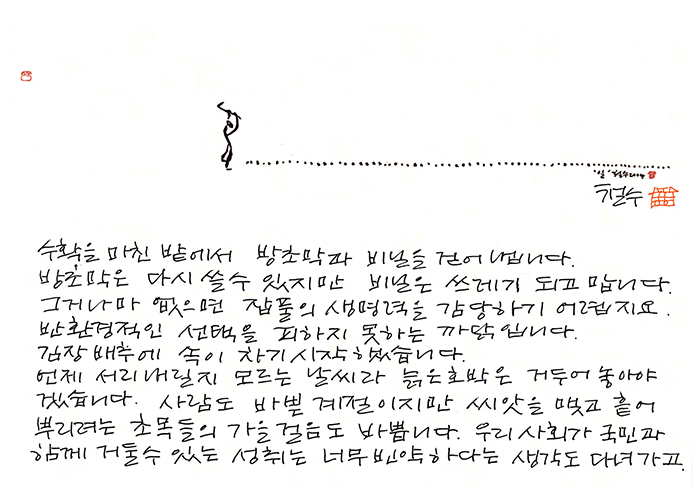 '일' 철수2004
철수
수확을 마친 밭에서 방초막과 비닐들 걷어냅니다.
방초막은 다시 쓸수 있지만 비닐은 쓰레기 되고 맙니다.
그거나마 없으면 잡풀의 생명력을 감당하기 어렵지요.
반환경적인 선택을 피하지 못하는 까닭입니다.
김장배추에 속이 차기시작했습니다.
언제 서리내릴지 모르는 날씨라 늙은호박은 거두어놓아야
겠습니다. 사람도 바쁜계절이지만 씨앗을 맺고 흩어
뿌리려는 초목들의 가을걸음도 바쁩니다. 우리사회가 국민과
함께 거둘수 있는 성취는 너무빈약하다는 생각도 다녀가고.